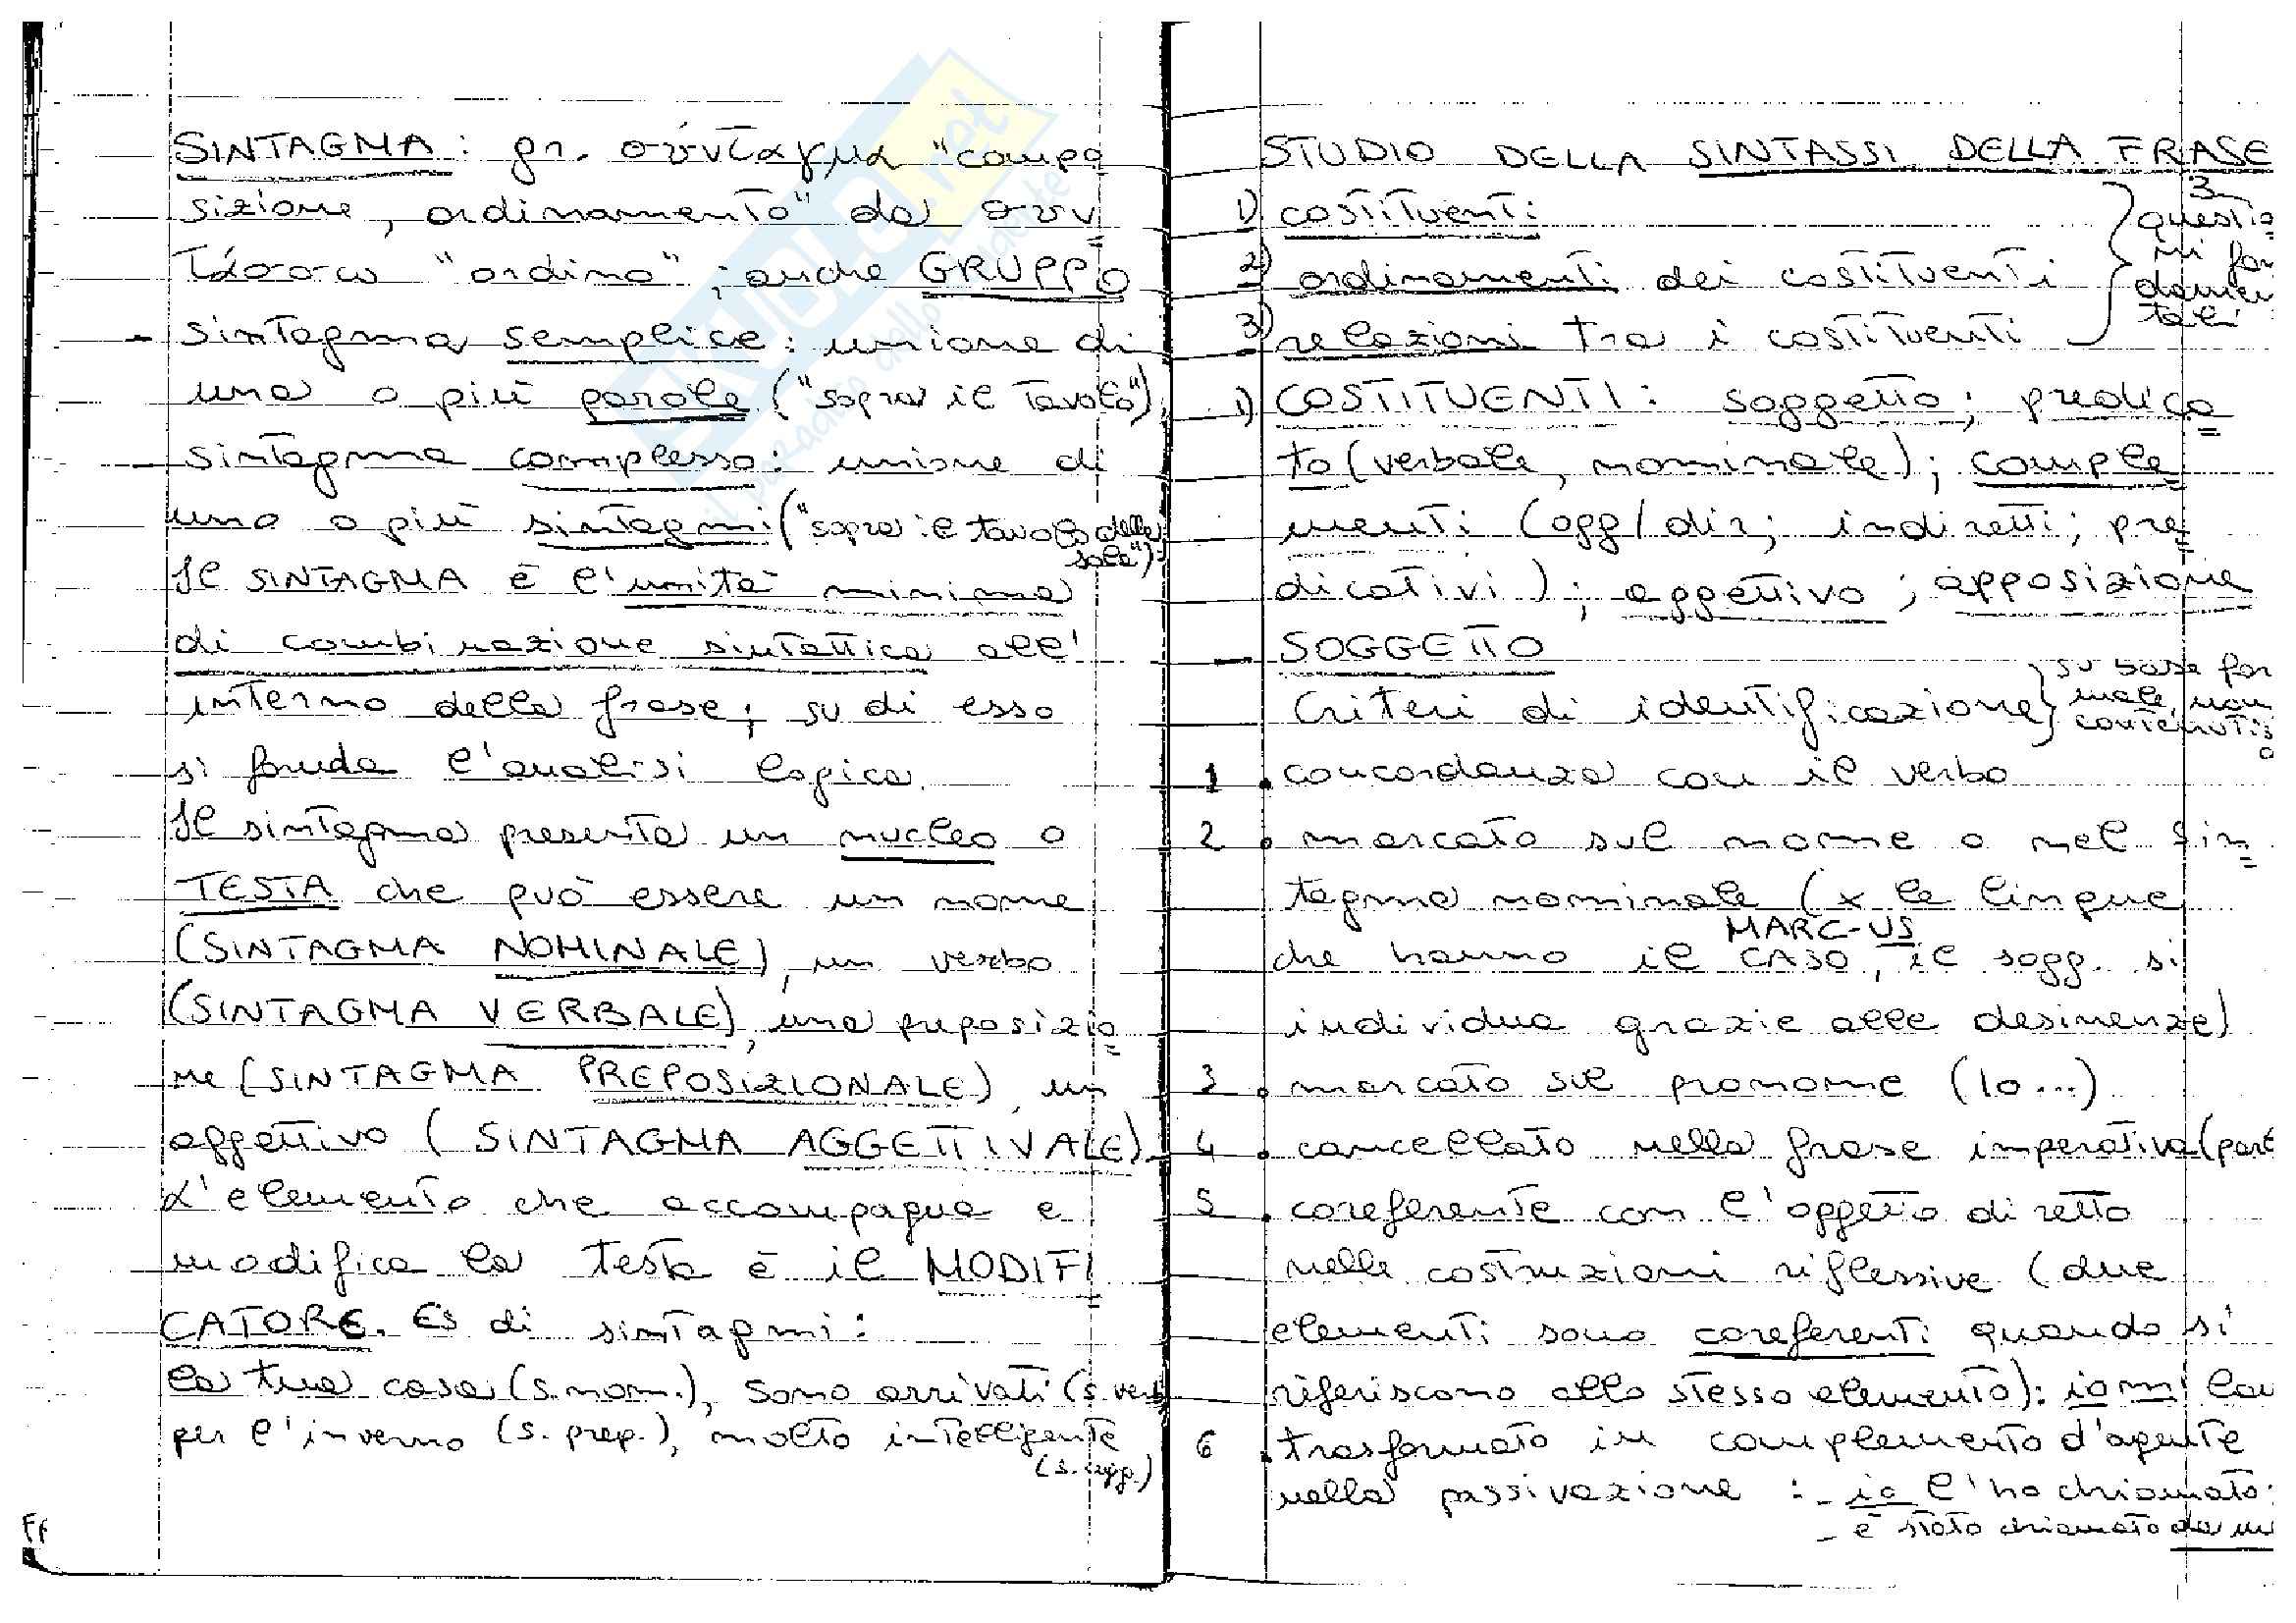 SINTAGMA: gr. σύνταγμα "compo
sizione, ordinamento" da συν
τάσσω "ordino"; anche GRUPPO
- sintagma semplice: unione di
una o più parole ("sopra il tavolo")
- sintagma complesso: unione di
uno o più sintagmi ("sopra il tavolo della
sala").
Il SINTAGMA è l'unità minima
di combinazione sintattica all'
interno della frase; su di esso
si fonda l'analisi logica.
Il sintagma presenta un nucleo o
TESTA che può essere un nome
(SINTAGMA NOMINALE), un verbo
(SINTAGMA VERBALE), una preposizio
ne (SINTAGMA PREPOSIZIONALE), un
aggettivo (SINTAGMA AGGETTIVALE).
L'elemento che accompagna e
modifica la testa è il MODIFI
CATORE. Es di sintagmi:
la tua casa (s. nom.), sono arrivati (s. verb
per l'inverno (s. prep.), molto intelligente
(s. agg.)
STUDIO DELLA SINTASSI DELLA FRASE
1) costituenti
2) ordinamenti dei costituenti
3) relazioni tra i costituenti
3
questio
ni fon
damen
tali
1) COSTITUENTI: soggetto; predica
to (verbale, nominale); comple
menti (ogg/dir; indiretti; pre
dicativi); aggettivo; apposizione
- SOGGETTO
Criteri di identificazione
su base for
male, non
contenutis
1 . concordanza con il verbo
2 . marcato sul nome o nel sin
tagma nominale (x le lingue
MARC-US
che hanno il CASO, il sogg. si
individua grazie alle desinenze)
3 . marcato sul pronome (Io...)
4 . cancellato nella frase imperativa (part
5 . coreferente con l'oggetto diretto
nelle costruzioni riflessive (due
elementi sono coreferenti quando si
riferiscono allo stesso elemento): io mi lav
6 . trasformato in complemento d'agente
nella passivazione : - io l'ho chiamato:
- è stato chiamato da me